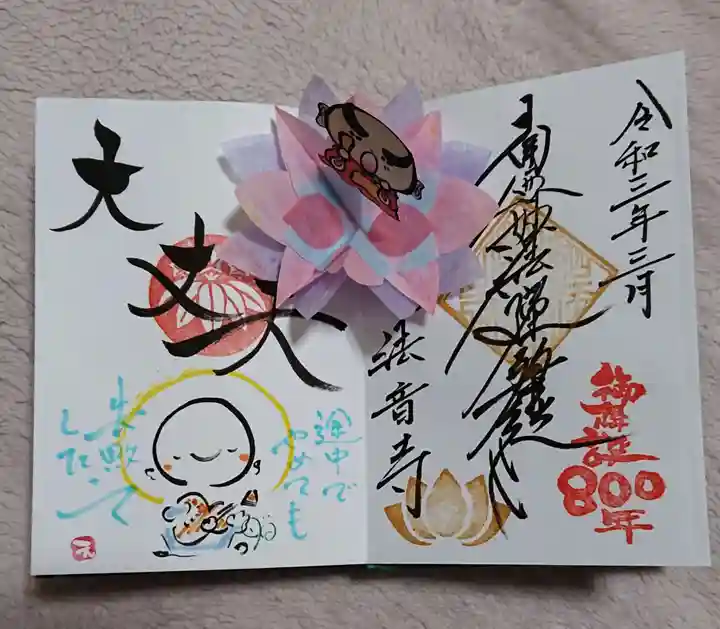 令和三年三月
南無妙法蓮華経
御降誕
800年
法音寺
大丈夫
途中で
やめても
失敗
した
え